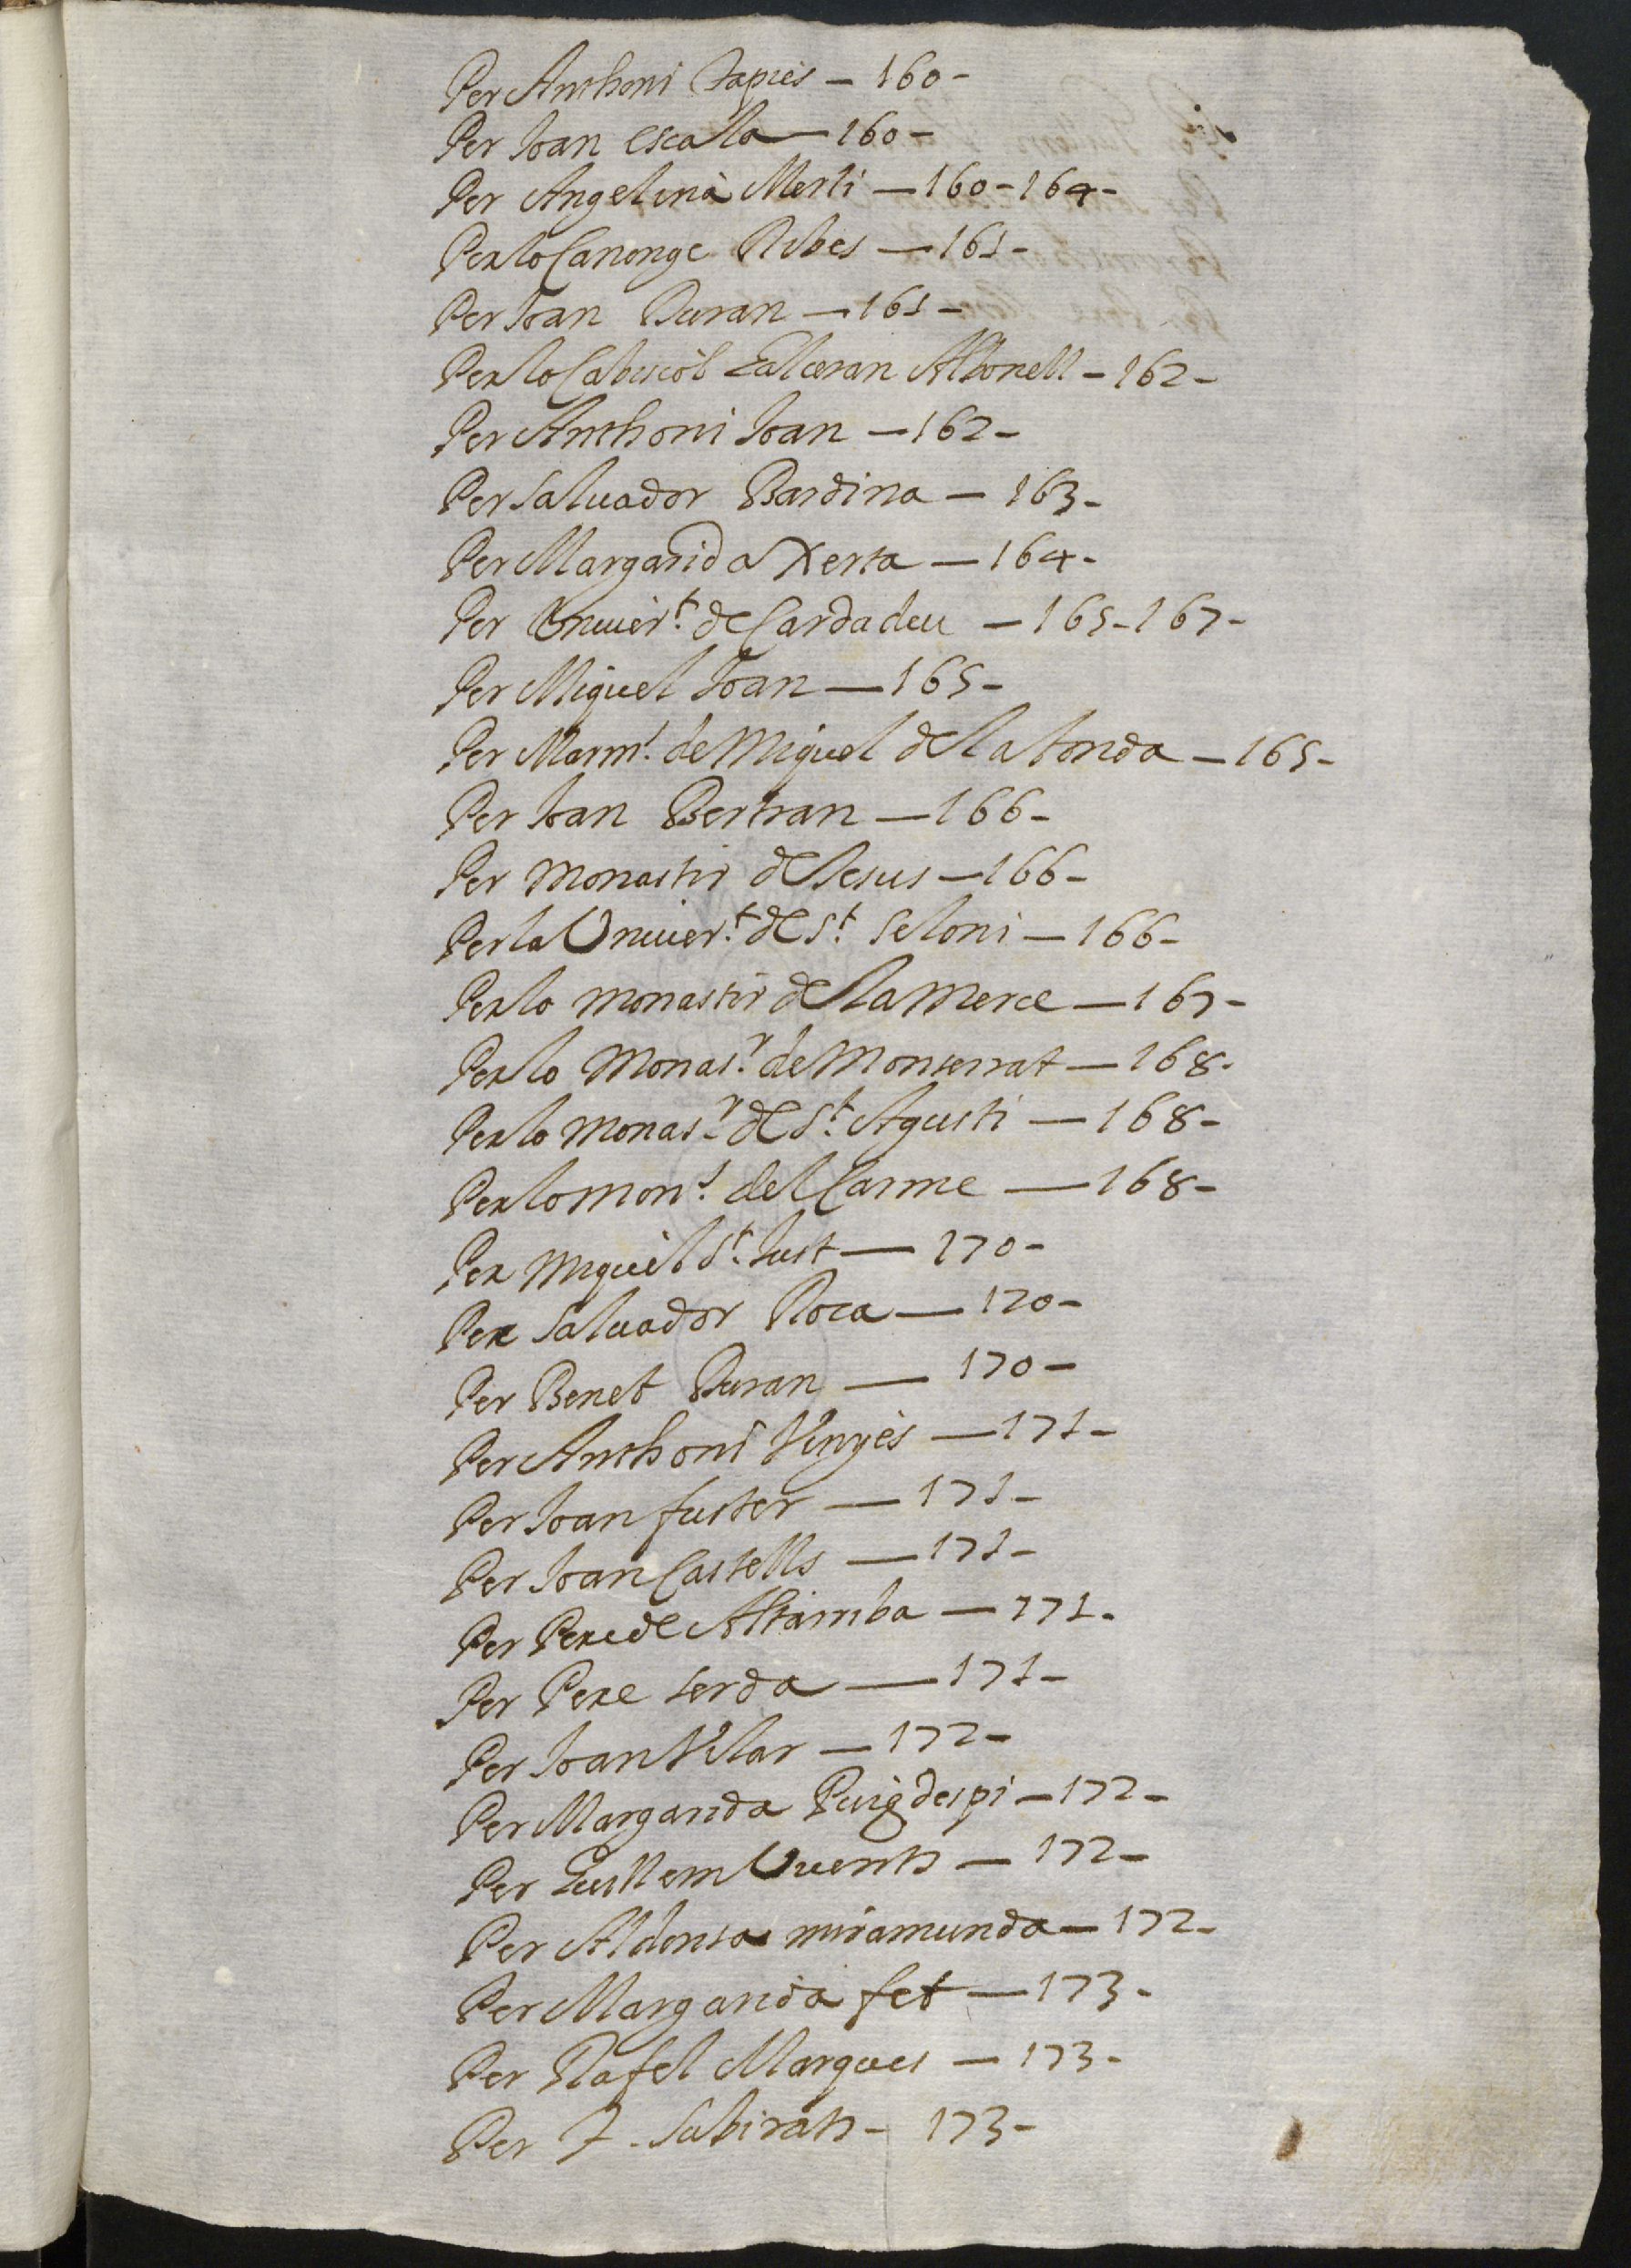 Per Anthoni Tapies — 160 -
Per Joan Escala — 160 -
Per Angelina Merli — 160 - 164 -
Per lo Canonge Ribes — 161 -
Per Joan Duran — 161 -
Per lo Cabiscol Galceran Albonell - 162 -
Per Anthoni Joan — 162 -
Per Salvador Bardina — 163 -
Per Margarida Xerta — 164 -
Per Univer.t de Cardadeu — 165 - 167 -
Per Miquel Joan — 165 -
Per Marm.r de Miquel de la fonda — 165 -
Per Joan Bertran — 166 -
Per Monastir de Jesus — 166 -
Per la Univer.t de S.t Seloni — 166 -
Per lo monastir de la Merce — 167 -
Per lo Monas.r de Monserrat — 168 -
Per lo monas.r de S.t Agusti — 168 -
Per lo mon.r del Carme — 168 -
Per Miquel S.t Just — 170 -
Per Salvador Roca — 170 -
Per Benet Duran — 170 -
Per Anthoni Vinyes — 171 -
Per Joan fuster — 171 -
Per Joan Castells — 171 -
Per Pere de Altarriba — 171 -
Per Pere Serda — 171 -
Per Joan Vilar — 172 -
Per Margarida Puigdespi — 172 -
Per Guillem — 172 -
Per Aldonsa miramunda — 172 -
Per Margarida fet — 173 -
Per Rafel Marques — 173 -
Per Subirats - 173 -